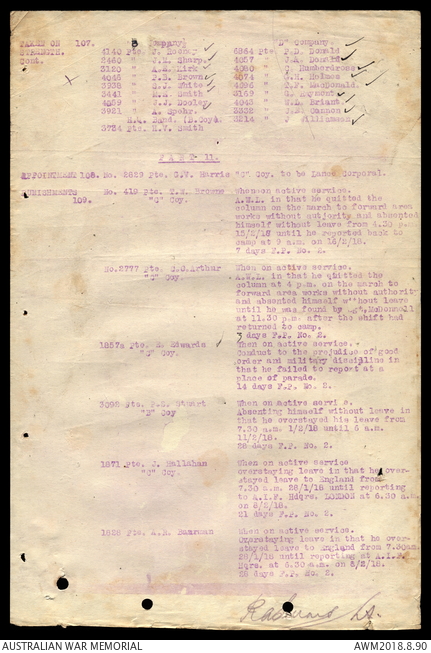 TAKEN ON 107. B Company D Company.
STRENGTH. 4140 Pte. Boomer 6864 Pte. P.D. Donald
Cont. 2460 " J.M. Sharp 4057 " J.A. Donald
3120 " A.H. Kirk 4080 " C. Humberdross
4046 " J.S. Brown 4074 " G.H. Holmes
3938 " S.J. White 4096 " C.F. MacDonald
3441 " E.A. Smith 3169 "
4059 " J.J. Dooley 4043 " W.L. Briant
3921 " A. Spehr 3332 " Cannon
H.Q. Band. (B.Coy). 3214 " J Williamson
3724 Pte. H.V. Smith
PART 11.
APPOINTMENT 108. No. 2829 Pte. C.V. Harris "C" Coy. to be Lance Corporal.
PUNISHMENTS No. 419 Pte. T.M. Browne When on active service.
109. "C" Coy. A.W.L. in that he quitted the
column on the march to forward area
works without autjority and absented
himself without leave from 4.30 p.m.
15/2/18 until he reported back to
camp at 9 am. on 16/2/18.
7 days F.P. No. 2.
No.2777 Pte. C.C.Arthur When on active service.
"C" Coy. A.W.L. in that he quitted the
column at 4 p.m. on the march to
forward area works without authority
and absented himself without leave
until he was found by Sgt. McDonnell
at 11.30 p.m. after the shift had
returned to camp.
3 days F.P. No. 2.
1857a Pte. E. Edwards When on active service.
"C" Coy. Conduct to the prejudice of good
order and military discipline in
that he failed to report at a
place of parade.
14 days F.P. No. 2.
3092 Pte. P.L. Stuart When on active service.
"B" Coy Absenting himself without leave in
that he overstayed his leave from
7.30 a.m. 1/2/18 until 6 a.m.
11/2/18.
28 days F.P. No. 2.
1871 Pte. J. Hallahan When on active service
"C" Coy. overstaying leave in that he over-
stayed leave to England from
7.30 a.m. 28/1/18 until reporting
to A.I.F. Hdqrs. LONDON at 6.30 a.m.
on 6/2/18.
21 days F.P. No. 2.
1628 Pte. A.R. Baarman When on active service.
Overstaying leave in that he over-
stayed leave to England from 7.30am.
28/1/18 until reporting at A.I.F.
Hqrs. at 6.30 a.m. on 6/2/18.
28 days F.P. No. 2.
AUSTRALIAN WAR MEMORIAL AWM2018.8.90